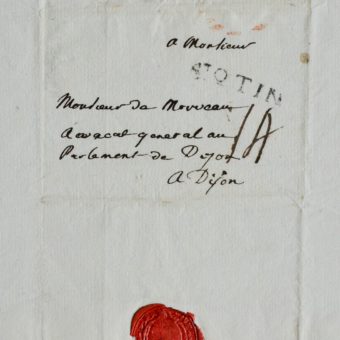 a Monsieur
Sᵗ QTIN
Monsieur de Morveau
14
avocat general au
Parlement de Dijon
A Dijon